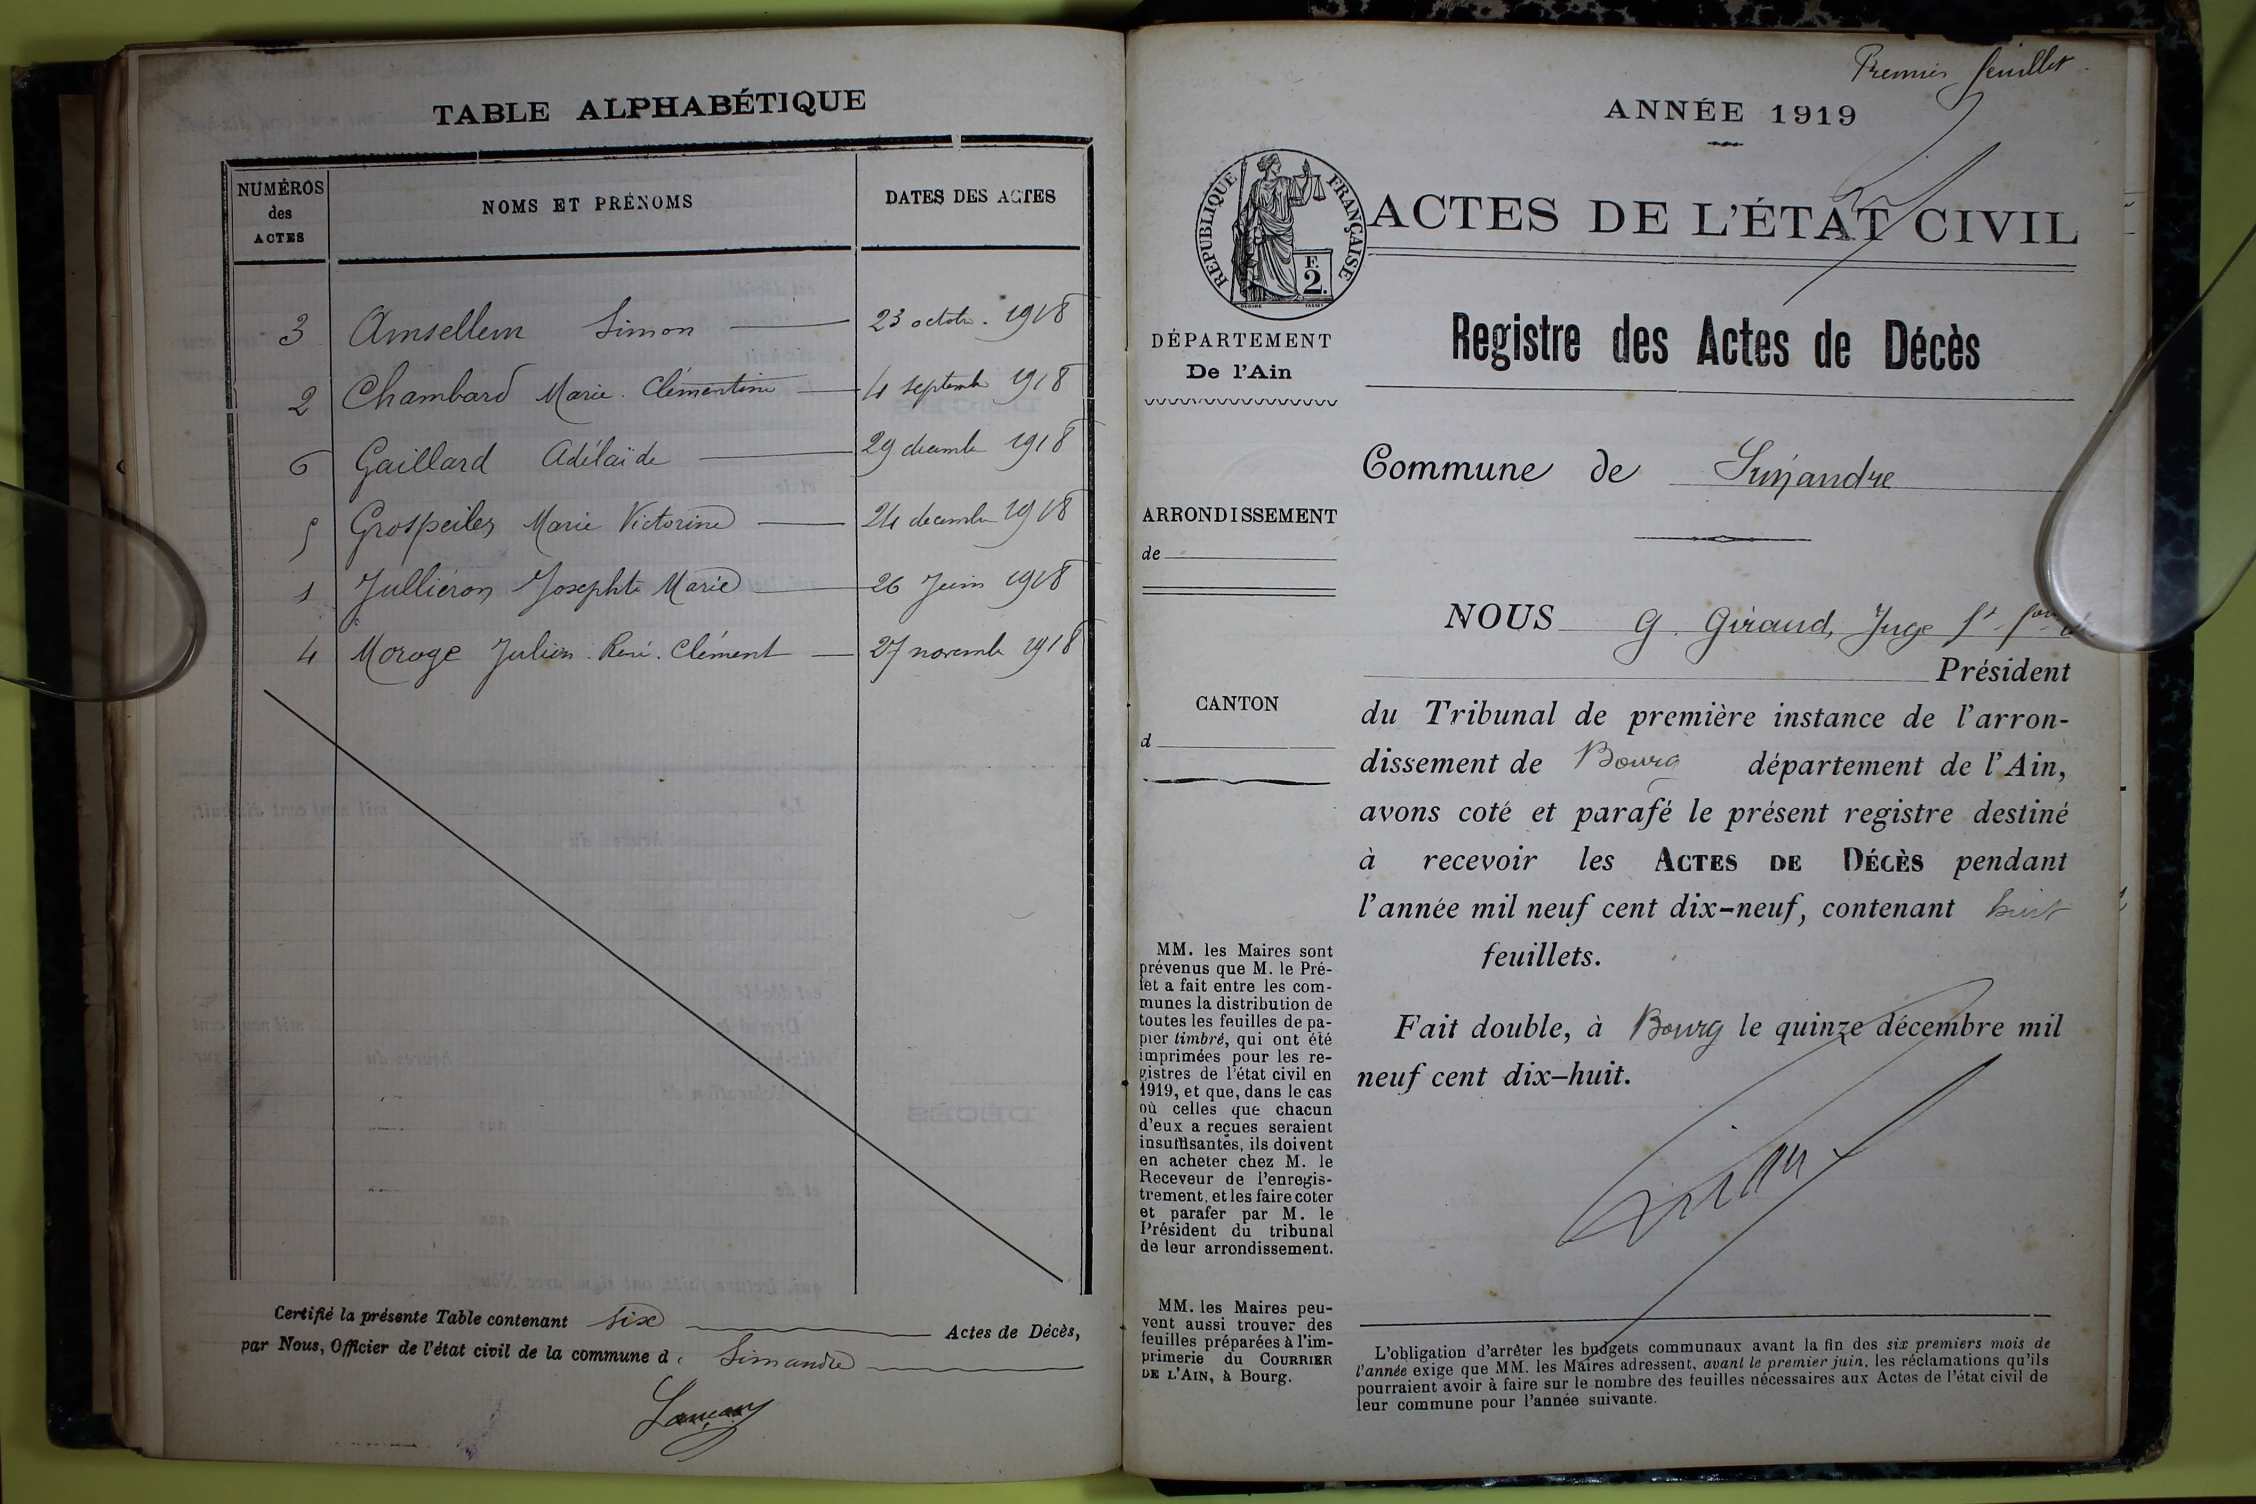 TABLE ALPHABÉTIQUE
NUMÉROS des ACTES
NOMS ET PRÉNOMS
DATES DES ACTES
3 Amsellem Simon 23 octob. 1918
2 Chambard Marie Clémentine 4 septembre 1918
6 Gaillard Adélaïde 29 decembre 1918
5 Grospeiler Marie Victorine 24 decembre 1918
1 Julliéron Josephte Marie 26 Juin 1918
4 Moroge Julien René Clément 27 novembre 1918
Certifié la présente Table contenant six Actes de Décès,
par Nous, Officier de l'état civil de la commune d Simandre
Premier feuillet
ANNÉE 1919
RÉPUBLIQUE FRANÇAISE
F.
2.
ACTES DE L'ÉTAT CIVIL
DÉPARTEMENT
De l'Ain
Registre des Actes de Décès
Commune de Simandre
ARRONDISSEMENT
de
CANTON
d
NOUS G. Giraud, Juge
Président
du Tribunal de première instance de l'arron-
dissement de Bourg département de l'Ain,
avons coté et parafé le présent registre destiné
à recevoir les ACTES DE DÉCÈS pendant
l'année mil neuf cent dix-neuf, contenant huit
feuillets.
Fait double, à Bourg le quinze décembre mil
neuf cent dix-huit.
MM. les Maires sont
prévenus que M. le Pré-
fet a fait entre les com-
munes la distribution de
toutes les feuilles de pa-
pier timbré, qui ont été
imprimées pour les re-
gistres de l'état civil en
1919, et que, dans le cas
où celles que chacun
d'eux a reçues seraient
insuffisantes, ils doivent
en acheter chez M. le
Receveur de l'enregis-
trement, et les faire coter
et parafer par M. le
Président du tribunal
de leur arrondissement.
MM. les Maires peu-
vent aussi trouver des
feuilles préparées à l'im-
primerie du COURRIER
DE L'AIN, à Bourg.
L'obligation d'arrêter les budgets communaux avant la fin des six premiers mois de
l'année exige que MM. les Maires adressent, avant le premier juin, les réclamations qu'ils
pourraient avoir à faire sur le nombre des feuilles nécessaires aux Actes de l'état civil de
leur commune pour l'année suivante.